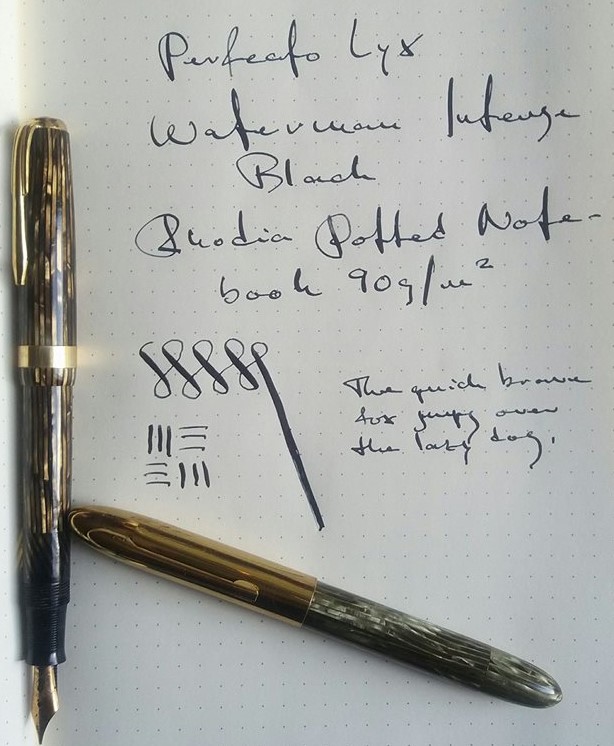 Perfecto Lyx
Waterman Intense
Black
Rhodia Dotted Note-
book 90g/m²
The quick brown
fox jumps over
the lazy dog.